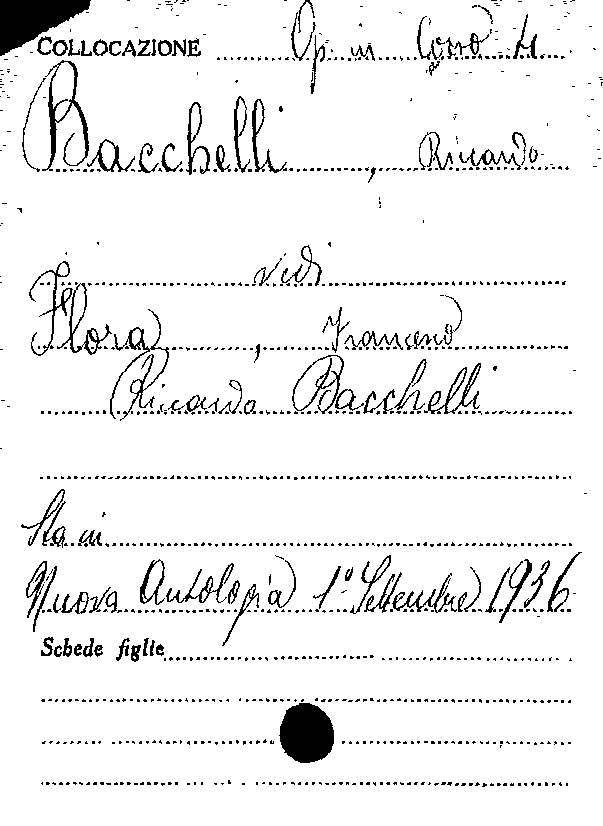 COLLOCAZIONE Op. in Corso 4
Bacchelli, Riccardo
vedi
Flora, Francesco
Riccardo Bacchelli
Sta in
Nuova Antologia 1° Settembre 1936
Schede figlie